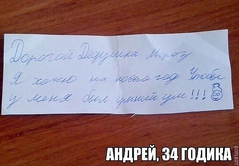 Дорогой Дедушка Мороз
Я хочу на новый год Чтобы
у меня был умный ум!!!
АНДРЕЙ, 34 ГОДИКА